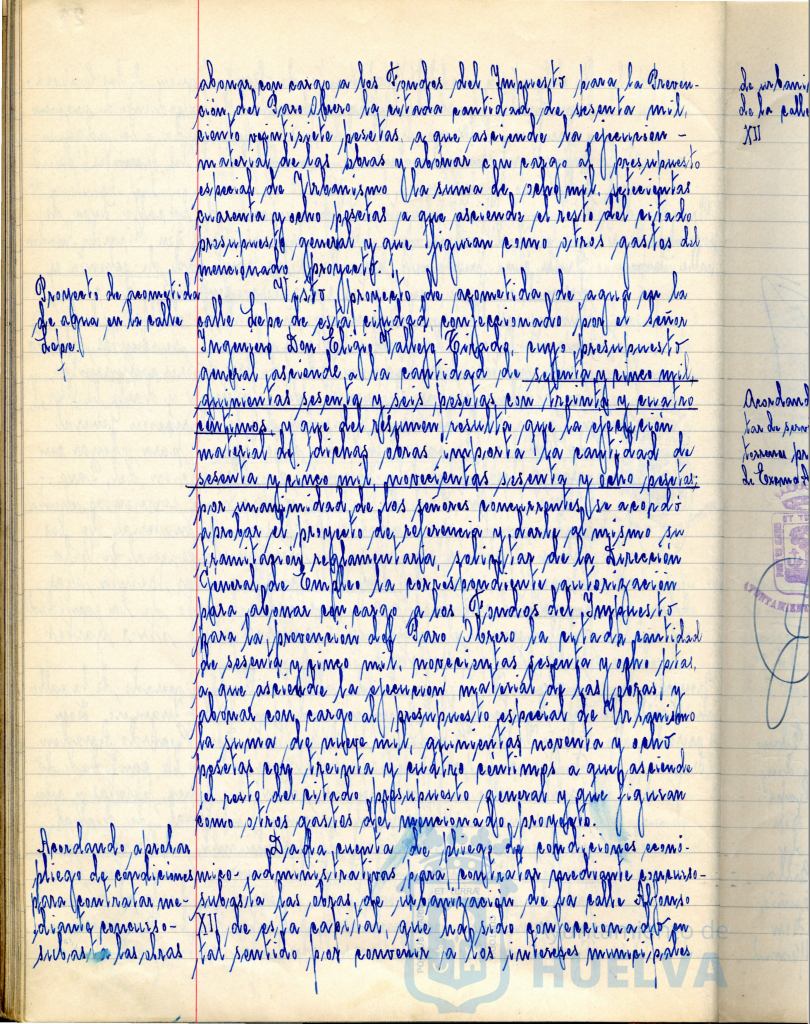 abonar con cargo a los Fondos del Impuesto para la Preven-
ción del Paro Obrero la citada cantidad de sesenta mil,
ciento veintisiete pesetas, a que asciende la ejecución -
material de las obras y abonar con cargo al presupuesto
especial de Urbanismo la suma de ocho mil, setecientas
cuarenta y ocho pesetas a que asciende el resto del citado
presupuesto general y que figuran como otros gastos del
mencionado proyecto.
Proyecto de acometida
de agua en la calle
Lepe.
Visto proyecto de acometida de agua en la
calle Lepe de esta ciudad, confeccionado por el señor
Ingeniero Don Eligio Vallejo Tirado, cuyo presupuesto
general asciende a la cantidad de setenta y cinco mil,
quinientas sesenta y seis pesetas con treinta y cuatro
céntimos y que del resumen resulta que la ejecución
material de dichas obras importa la cantidad de
sesenta y cinco mil, novecientas sesenta y ocho pesetas;
por unanimidad de los señores concurrentes, se acordó
aprobar el proyecto de referencia y darle al mismo su
tramitación reglamentaria, solicitar de la Dirección
General de Empleo la correspondiente autorización
para abonar con cargo a los Fondos del Impuesto
para la prevención del Paro Obrero la citada cantidad
de sesenta y cinco mil, novecientas sesenta y ocho ptas,
a que asciende la ejecución material de las obras y
abonar con cargo al presupuesto especial de Urbanismo
la suma de nueve mil, quinientas noventa y ocho
pesetas con treinta y cuatro céntimos a que asciende
el resto del citado presupuesto general y que figuran
como otros gastos del mencionado proyecto.
Acordando aprobar
pliego de condiciones
para contratar me-
diante concurso-
subasta las obras
Dada cuenta de pliego de condiciones econó-
mico-administrativas para contratar mediante concurso-
subasta las obras de urbanización de la calle Alfonso
XII, de esta capital, que ha sido confeccionado en
tal sentido por convenir a los intereses municipales
de urbani
de la calle
XII
Acordand
tar de
terrenos pr
de
AYUNTAMIENTO
Ayuntamiento de
HUELVA